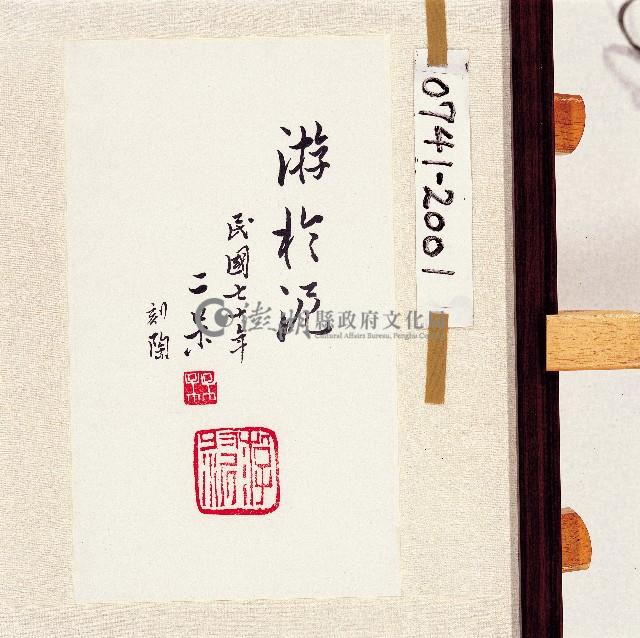 游於泥
民國七十年
二呆
刻陶
0741-2001
澎湖縣政府文化局
Cultural Affairs Bureau, Penghu